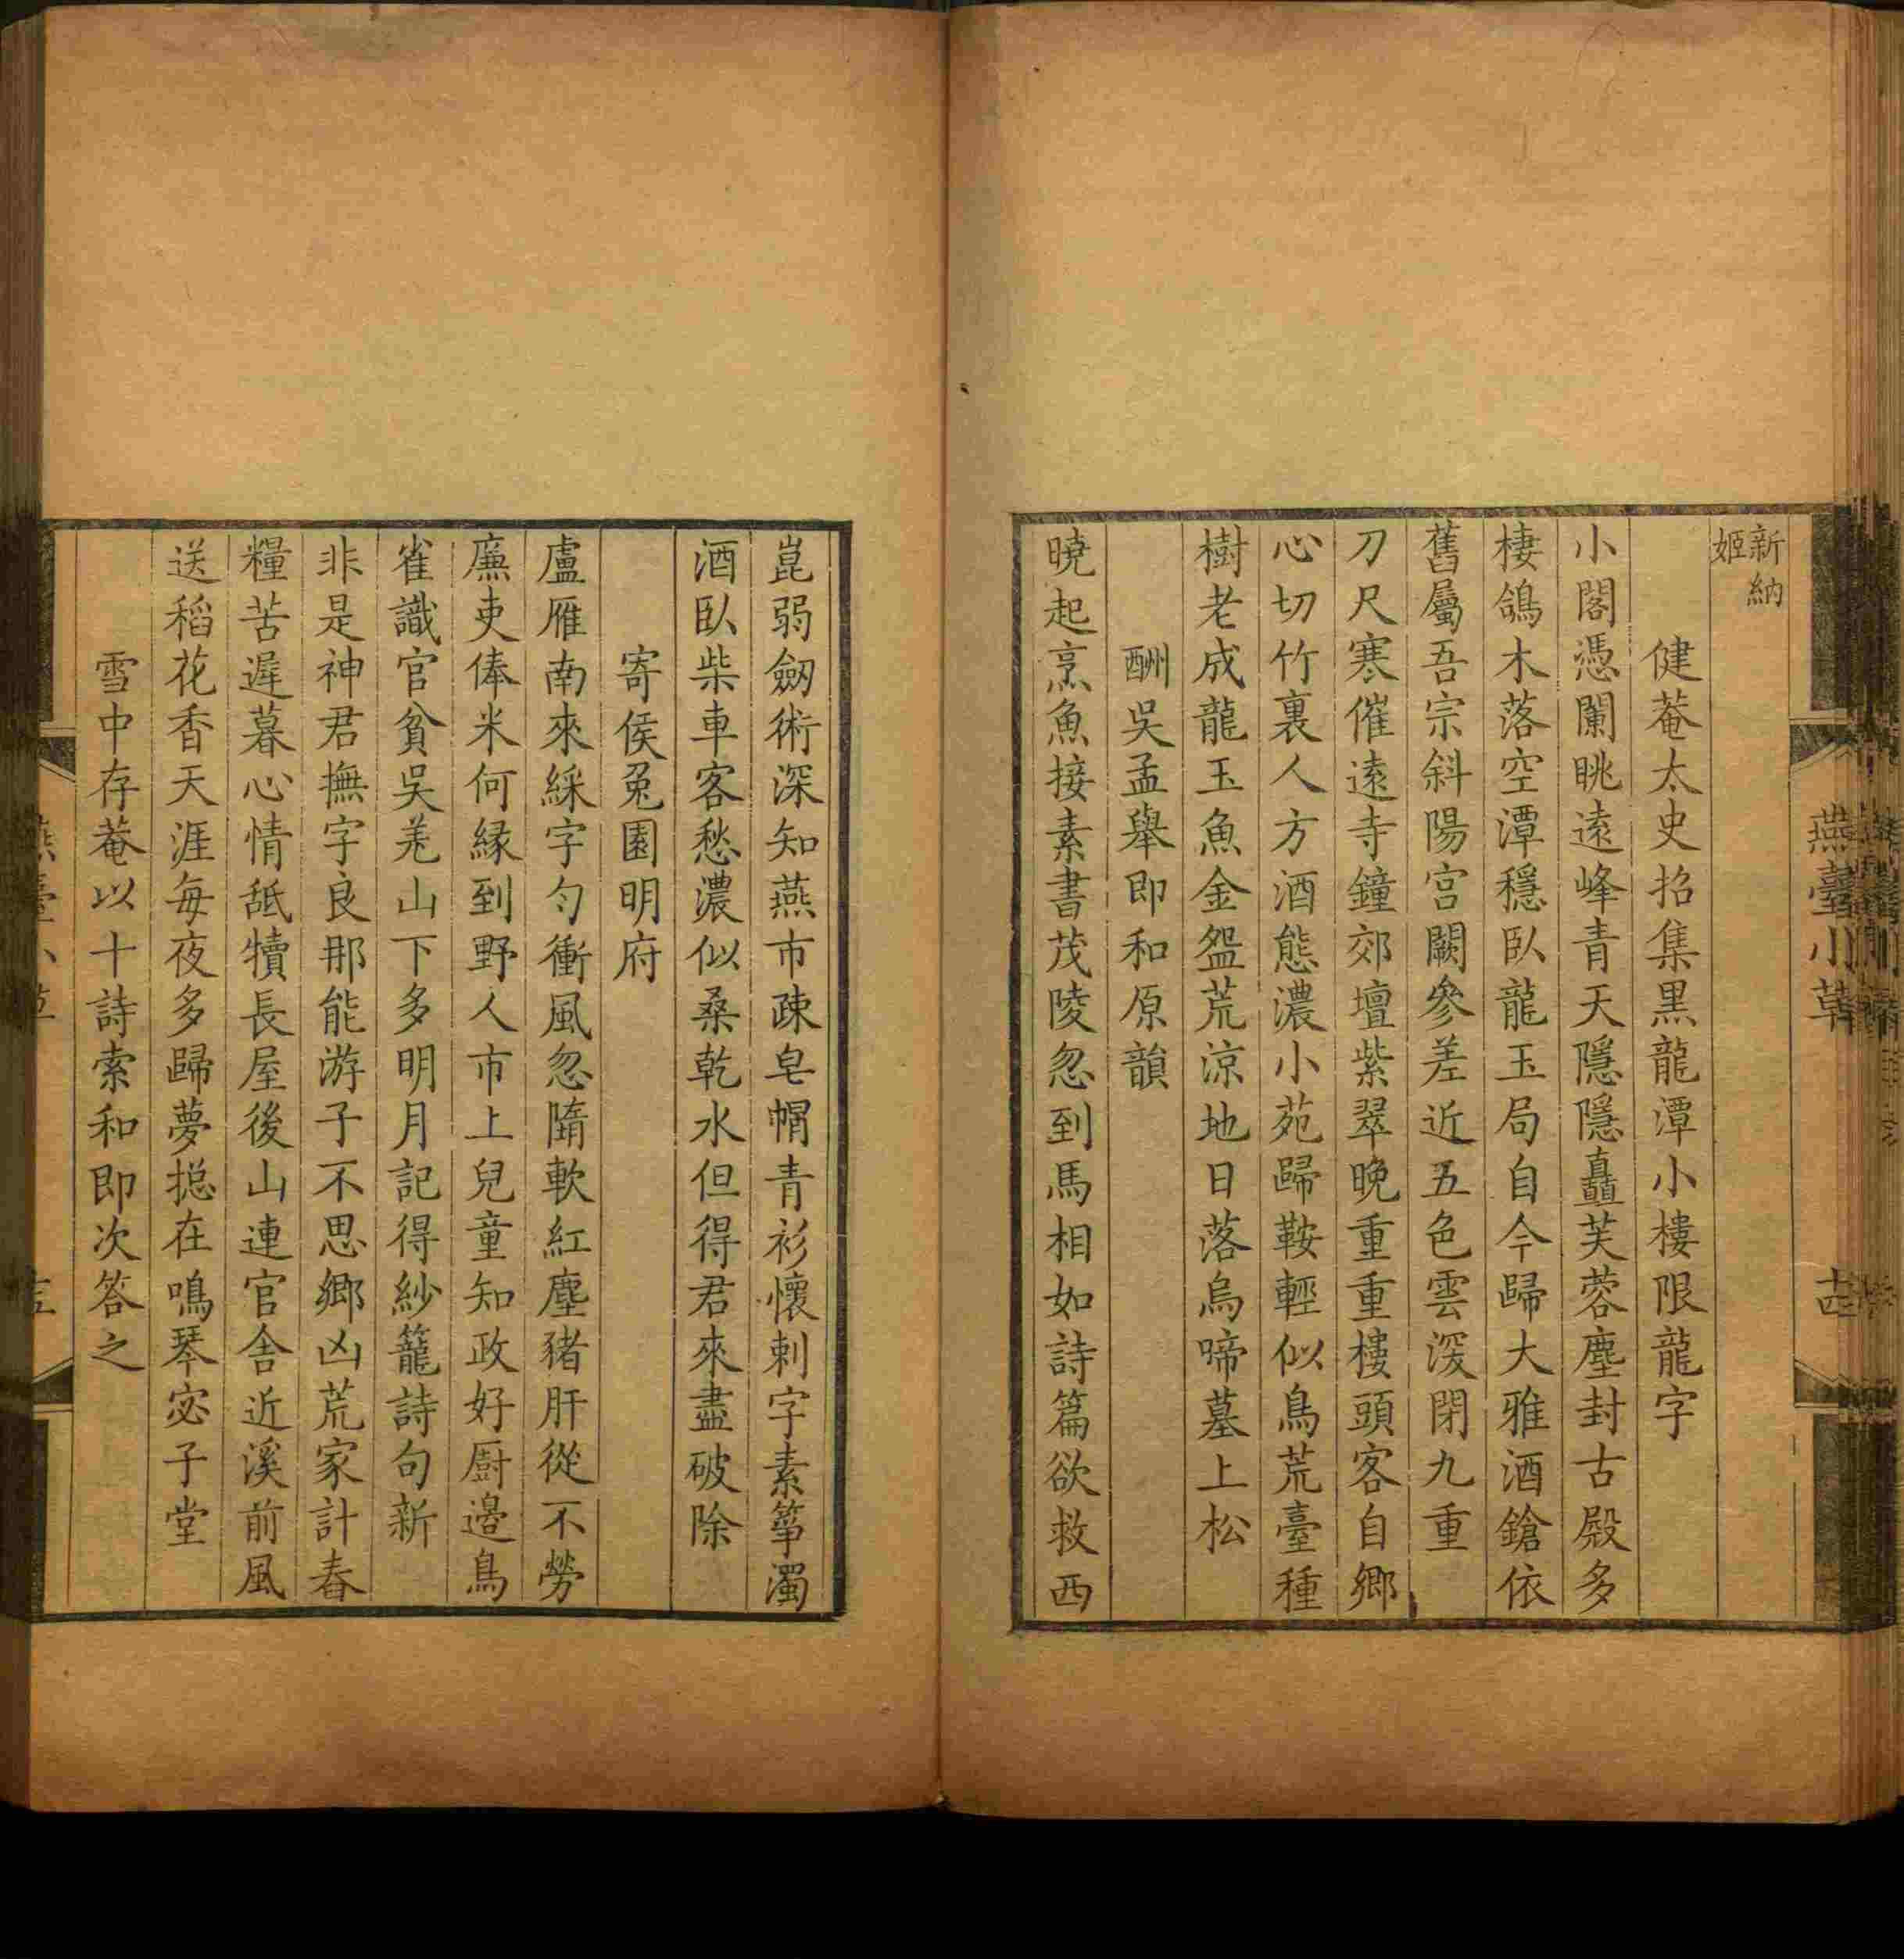 燕臺小草
古
新納
姬
健菴太史招集黑龍潭小樓限龍字
小閣憑闌眺遠峰青天隱隱矗芙蓉塵封古殿多
棲鴿木落空潭穩臥龍玉局自今歸大雅酒鎗依
舊屬吾宗斜陽宫闕參差近五色雲深閉九重
刀尺寒催遠寺鐘郊壇紫翠晚重重樓頭客自鄉
心切竹裏人方酒態濃小苑歸鞍輕似鳥荒臺種
樹老成龍玉魚金盌荒涼地日落烏啼墓上松
酬吳孟舉即和原韻
曉起烹魚接素書茂陵忽到馬相如詩篇欲救西
崑弱劒術深知燕市疎皂帽青衫懷刺字素箏濁
酒臥柴車客愁濃似桑乾水但得君來盡破除
寄侯兎園明府
盧雁南來綵字勻衝風忽隋軟紅塵豬肝從不勞
廉吏俸米何緣到野人市上兒童知政好厨邉鳥
雀識官貧吳羌山下多明月記得紗籠詩句新
非是神君撫字良那能游子不思鄉凶荒家計舂
糧苦遲暮心情舐犢長屋後山連官舍近溪前風
送稻花香天涯每夜多歸夢搃在鳴琴宓子堂
雪中存菴以十詩索和即次答之